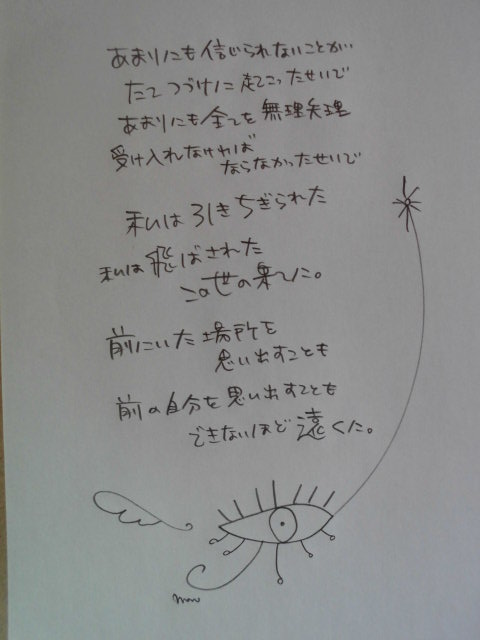 あまりにも信じられないことが
たてつづけに起こったせいで
あまりにも全てを無理矢理
受け入れなければ
ならなかったせいで
私は引きちぎられた
私は飛ばされた
この世の果てに。
前にいた場所を
思い出すことも
前の自分を思い出すことも
できないほど遠くに。